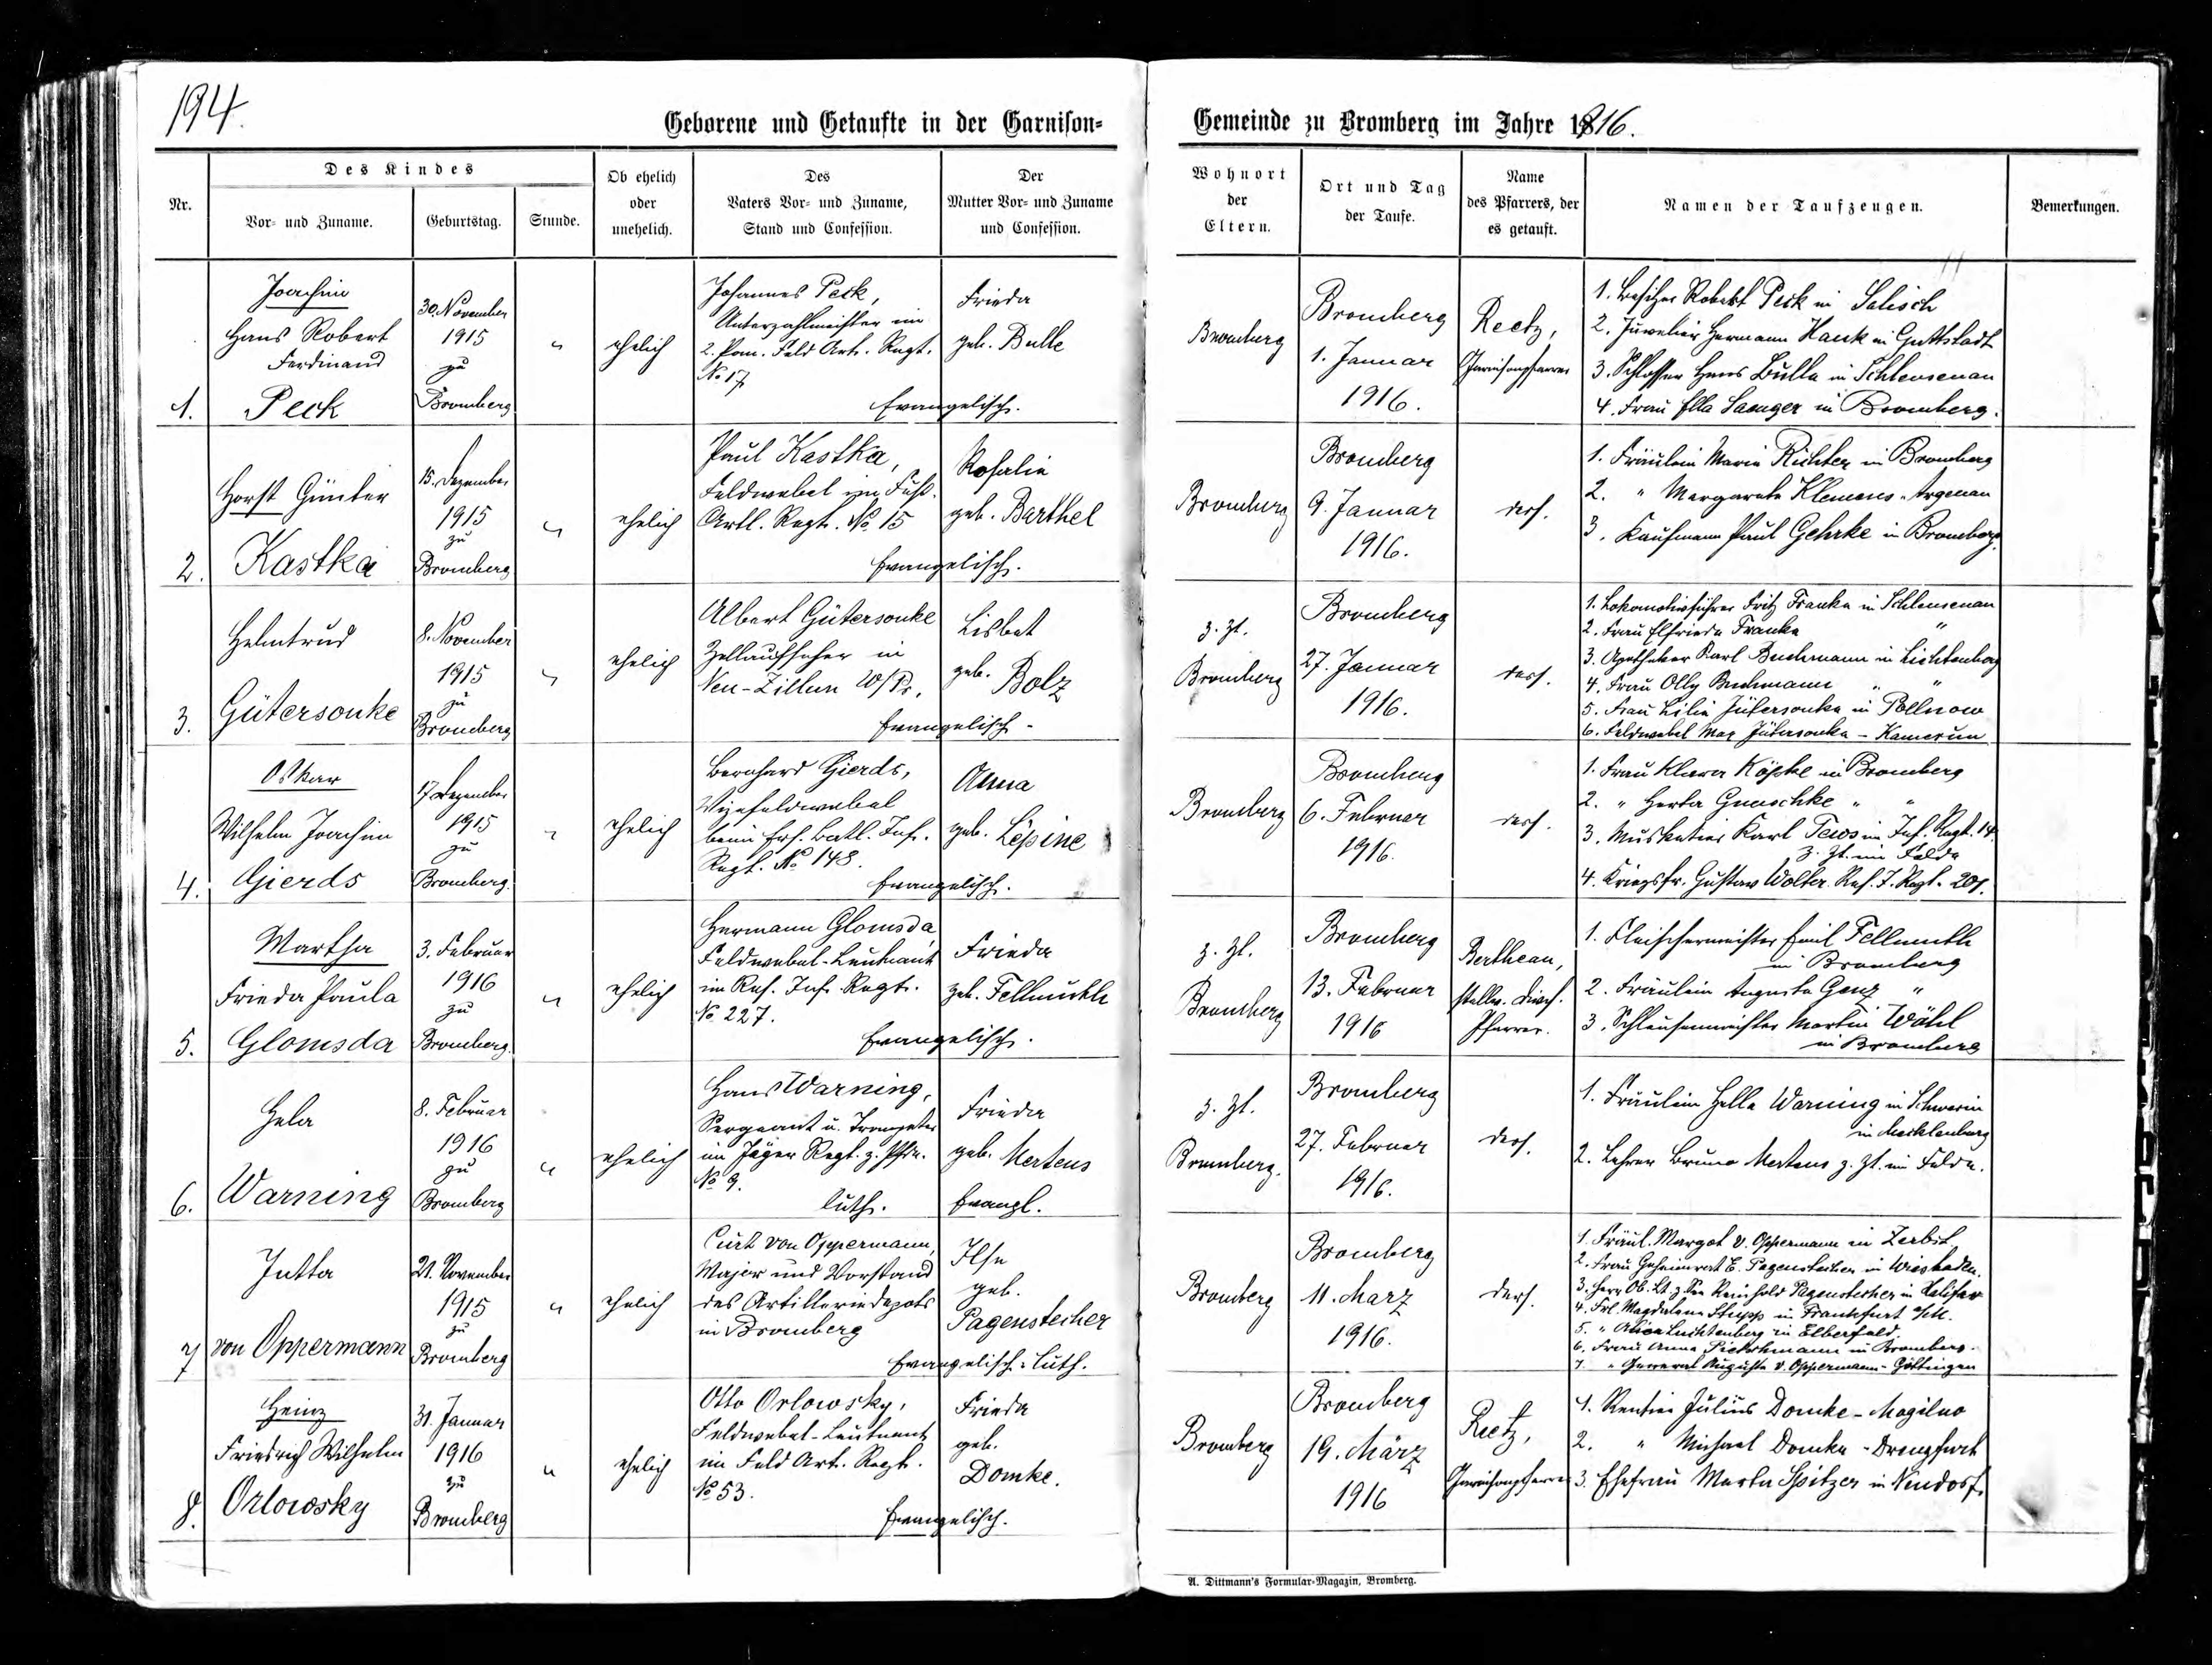 194.
Geborene und Getaufte in der Garnison=
Gemeinde zu Bromberg im Jahre 1916.
Nr.
Des Kindes
Vor= und Zuname.
Geburtstag.
Stunde.
Ob ehelich
oder
unehelich.
Des
Vaters Vor= und Zuname,
Stand und Confession.
Der
Mutter Vor= und Zuname
und Confession.
Wohnort
der
Eltern.
Ort und Tag
der Taufe.
Name
des Pfarrers, der
es getauft.
Namen der Taufzeugen.
Bemerkungen.
1.
Joachim
Hans Robert
Ferdinand
Peck
30. November
1915
zu
Bromberg
"
ehelich
Johannes Peck,
Unterzahlmeister im
2. Pom. Feld Art. Regt.
No 17
Frieda
geb. Bulle
Evangelisch.
Bromberg
Bromberg
1. Januar
1916.
Reetz,
Garnisonpfarrer
1. Besitzer Robert Peck in Salesch
2. Juwelier Hermann Hauk in Guttstadt
3. Schlosser Hans Bulla in Schleusenau
4. Frau Ella Saenger in Bromberg.
2.
Horst Günter
Kastka
15. Dezember
1915
zu
Bromberg
"
ehelich
Paul Kastka,
Feldwebel im Fuß.
Artl. Regt. No 15
Rosalie
geb. Barthel
Evangelisch.
Bromberg
Bromberg
9. Januar
1916.
ders.
1. Fräulein Maria Richter in Bromberg
2. " Margarete Klemens - Argenau
3. Kaufmann Paul Gehrke in Bromberg.
3.
Helmtrud
Gütersonke
8. November
1915
zu
Bromberg
"
ehelich
Albert Gütersonke
Zollaufseher in
Neu-Zillun W/Pr.
Lisbet
geb. Bolz
Evangelisch -
z. Zt.
Bromberg
Bromberg
27. Januar
1916.
ders.
1. Lokomotivführer Fritz Franke in Schleusenau
2. Frau Elfriede Franke "
3. Apotheker Karl Buchmann in Lichtenberg
4. Frau Olly Buchmann " "
5. Frau Lilie Gütersonke in Pollnow
6. Feldwebel Max Gütersonke - Kamerun
4.
Oskar
Wilhelm Joachim
Gierds
17. Dezember
1915
zu
Bromberg.
"
ehelich
Bernhard Gierds,
Vizefeldwebel
beim Ers. Batl. Inf.
Regt. No 148.
Anna
geb. Lépine
Evangelisch.
Bromberg
Bromberg
6. Februar
1916.
ders.
1. Frau Klara Köpke in Bromberg
2. " Herta Gnuschke " "
3. Musketier Karl Tews im Inf. Regt. 14.
z. Zt. im Felde
4. Kriegsfr. Gustav Wolter Res. I. Regt. 201.
5.
Martha
Frieda Paula
Glomsda
3. Februar
1916
zu
Bromberg.
"
ehelich
Hermann Glomsda,
Feldwebel-Leutnant
im Res. Inf. Regt.
No 227.
Frieda
geb. Fellmuth
Evangelisch.
z. Zt.
Bromberg
Bromberg
13. Februar
1916
Bertheau,
stellv. Divis.
Pfarrer.
1. Fleischermeister Emil Fellmuth
in Bromberg
2. Fräulein Auguste Genz "
3. Schleusenmeister Martin Wöhl
in Bromberg
6.
Hela
Warning
8. Februar
1916
zu
Bromberg
"
ehelich
Hans Warning,
Sergeant u. Trompeter
im Jäger Regt. z. Pfde.
No 9.
luth.
Frieda
geb. Mertens
Evangl.
z. Zt.
Bromberg.
Bromberg
27. Februar
1916.
ders.
1. Fräulein Hella Warning in Schwerin
in Mecklenburg
2. Lehrer Bruno Mertens z. Zt. im Felde.
7
Jutta
von Oppermann
21. November
1915
zu
Bromberg
"
ehelich
Curt von Oppermann,
Major und Vorstand
des Artilleriedepots
in Bromberg
Ilse
geb.
Pagenstecher
Evangelisch-luth.
Bromberg
Bromberg
11. März
1916.
ders.
1. Fräul. Margot v. Oppermann in Zerbst
2. Frau Geheimrat E. Pagenstecher in Wiesbaden.
3. Herr Ob. Lt. z. See Reinhold Pagenstecher in
4. Frl. Magdalene Stupp in Frankfurt a/M.
5. " Alice Luchtenberg in Elberfeld.
6. Frau Anna in Bromberg.
7. " General Auguste v. Oppermann - Göttingen
8.
Heinz
Friedrich Wilhelm
Orlowsky
31. Januar
1916
zu
Bromberg
"
ehelich
Otto Orlowsky,
Feldwebel-Leutnant
im Feld Art. Regt.
No 53.
Frieda
geb.
Domke.
Evangelisch.
Bromberg
Bromberg
19. März
1916
Reetz,
Garnisonpfarrer
1. Rentier Julius Domke - Mogilno
2. " Michael Domke - Drengfurt
3. Ehefrau Marta Spitzer in Neudorf.
A. Dittmann's Formular=Magazin, Bromberg.